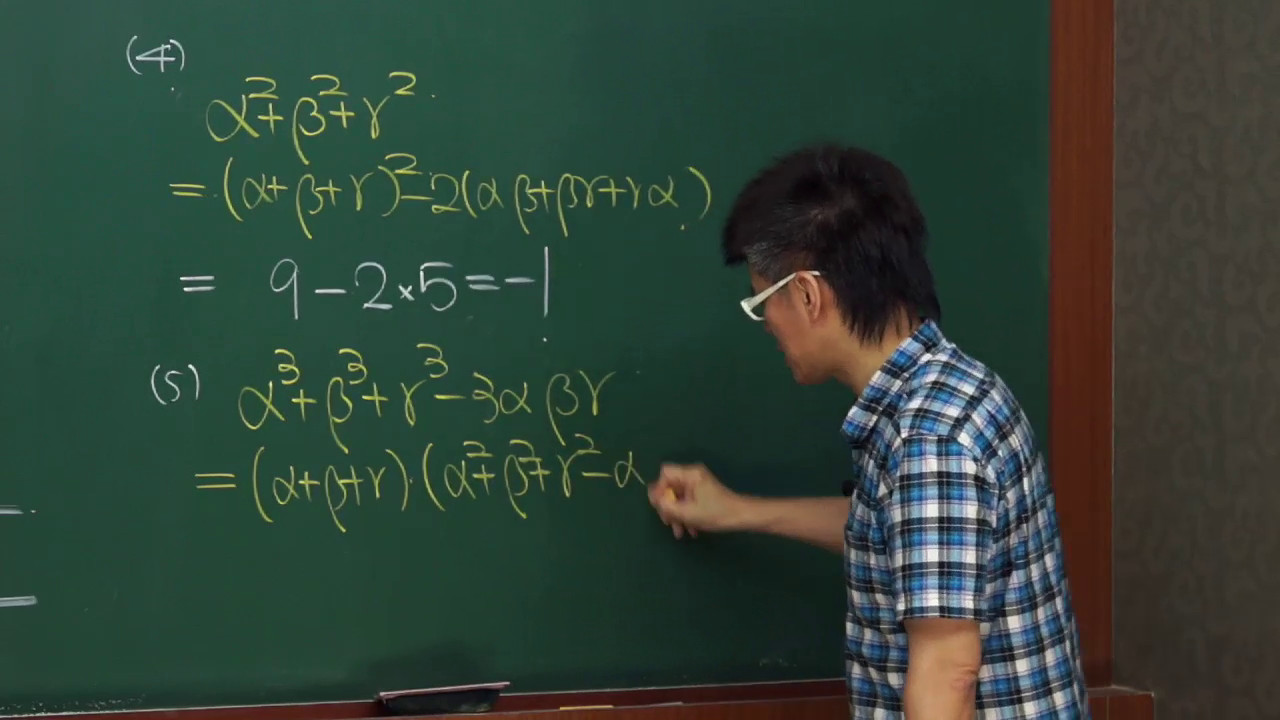 (4)
α²+β²+γ²
=(α+β+γ)²-2(αβ+βγ+γα)
= 9-2×5=-1
(5) α³+β³+γ³-3αβγ
=(α+β+γ)·(α²+β²+γ²-α